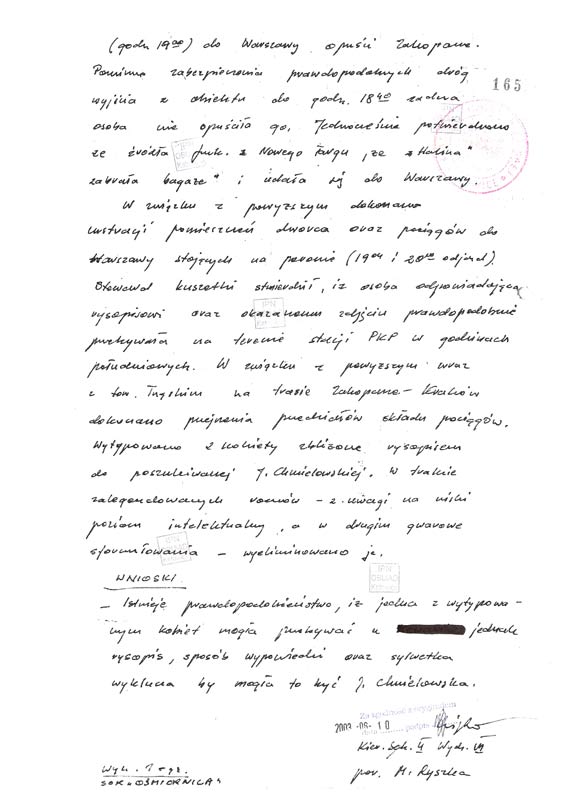 (godz. 19⁰⁰) do Warszawy opuści Zakopane.
Pomimo zabezpieczenia prawdopodobnych dróg
165
wyjścia z obiektu do godz. 18⁴⁰ żadna
osoba nie opuściła go. Jednocześnie potwierdzono
ze źródła funk. z Nowego Targu, że „Halina"
zabrała bagaże" i udała się do Warszawy.
W związku z powyższym dokonano
lustracji pomieszczeń dworca oraz pociągów do
Warszawy stojących na peronie (19⁰⁴ i 20⁰⁰ odjazd).
kuszetki stwierdził, iż osoba odpowiadająca
rysopisowi oraz okazanemu zdjęciu prawdopodobnie
przebywała na terenie stacji PKP w godzinach
południowych. W związku z powyższym wraz
z tow. na trasie Zakopane – Kraków
dokonano przejrzenia przedziałów składu pociągów.
Wytypowano 2 kobiety zbliżone rysopisem
do poszukiwanej J. Chmielowskiej. W trakcie
zalegendowanych rozmów – z uwagi na niski
poziom intelektualny, a w drugim gwarowe
sformułowania – wyeliminowano je.
WNIOSKI
– Istnieje prawdopodobieństwo, iż jedna z wytypowa-
nym kobiet mogła przebywać u jednak
rysopis, sposób wypowiedzi oraz sylwetka
wyklucza by mogła to być J. Chmielowska.
IPN
Za zgodność z oryginałem
2003-06-10 podpis
Kier. Sek. II Wydz. VII
por. M. Ryszka
Wyk. 1 egz.
SOR „OŚMIORNICA"